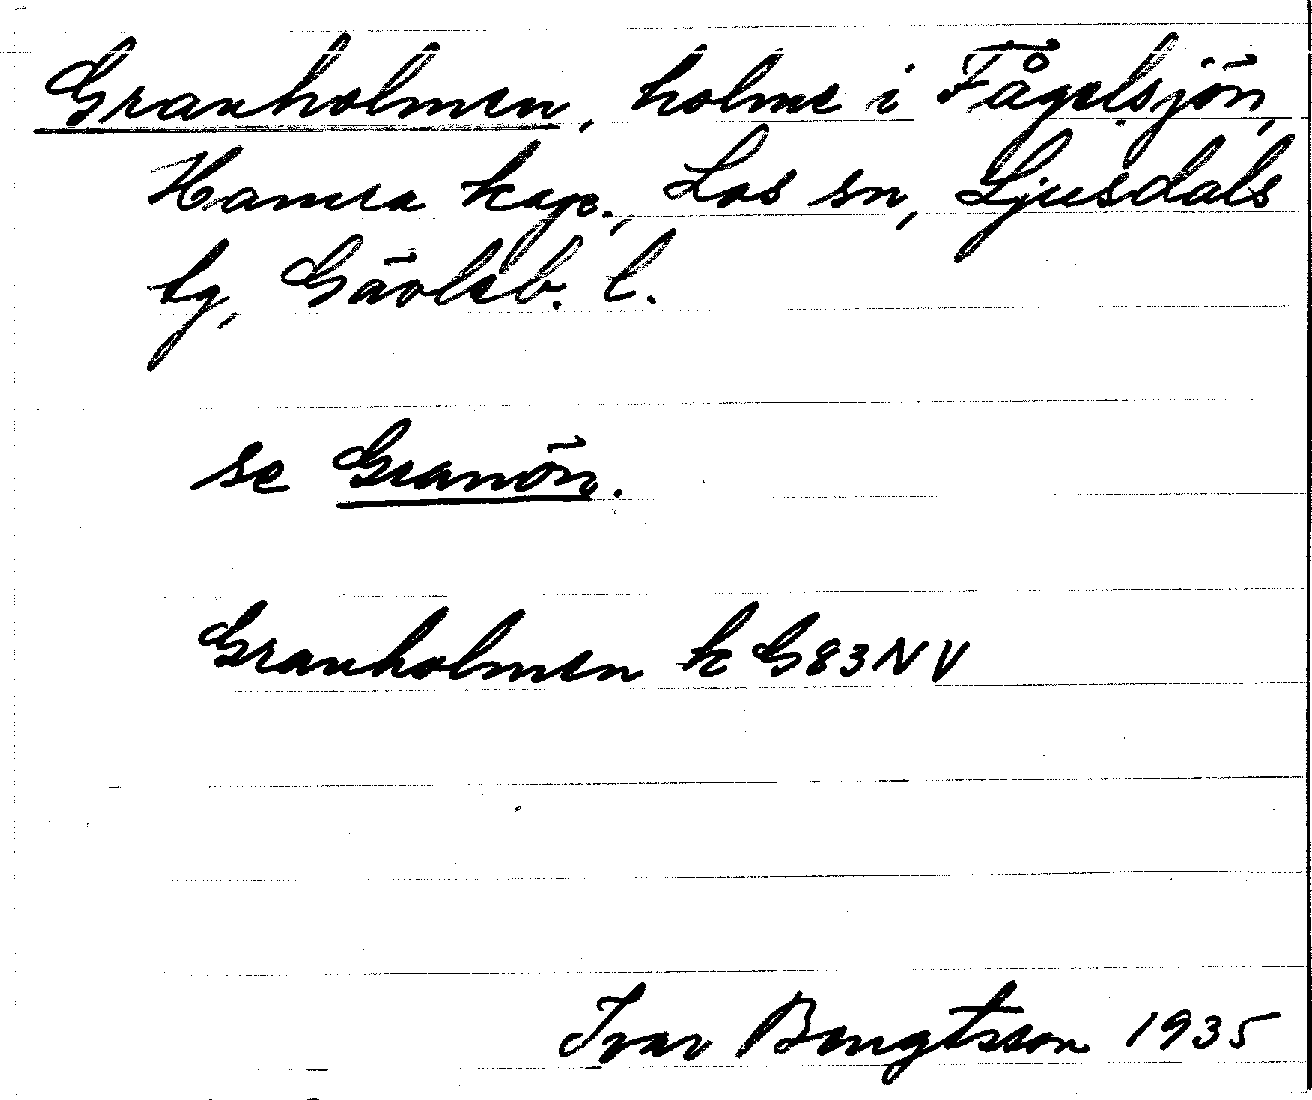 Granholmen, holme i Fågelsjön,
Hamra kap., Los sn, Ljusdals
tg, Gävleb. l.
se Granön.
Granholmen k G83NV
Ivar Bengtsson 1935